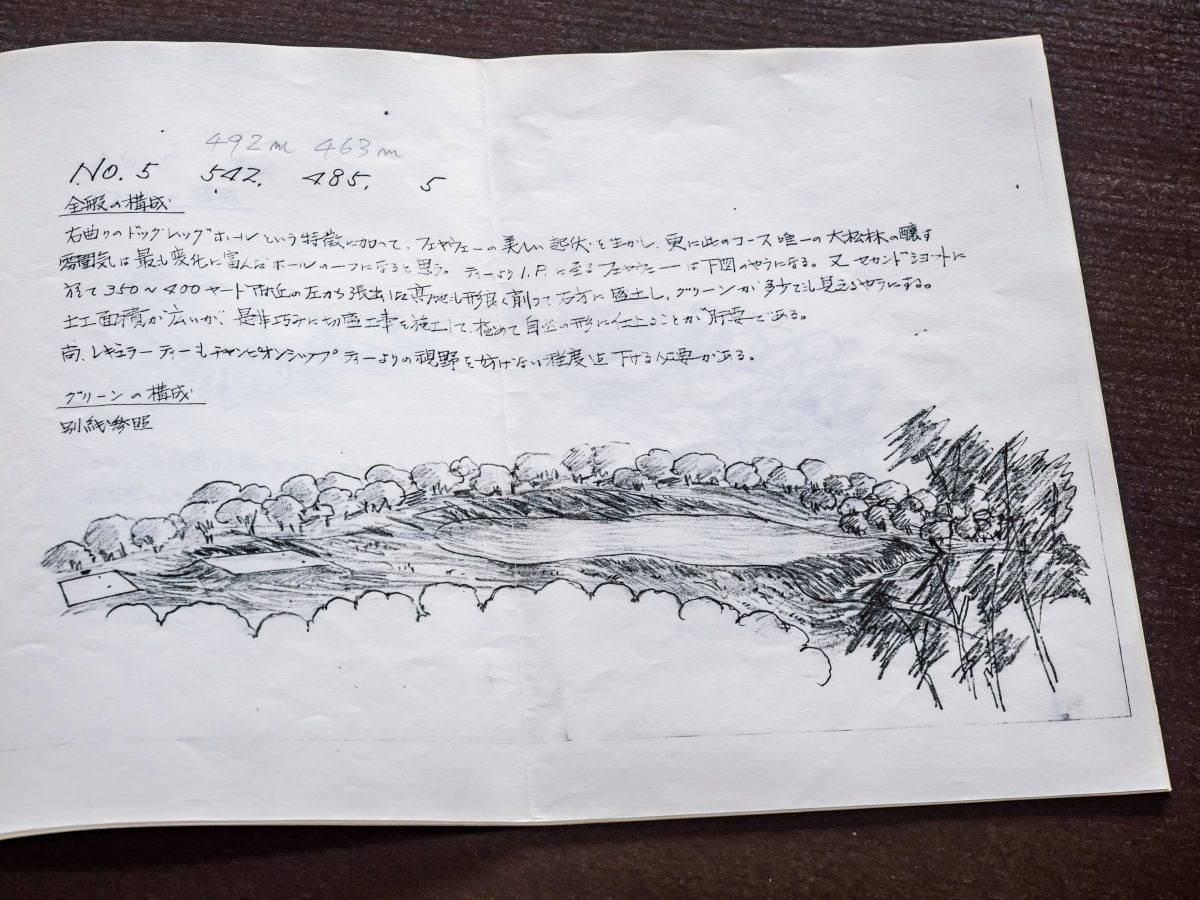 492m 463m
NO. 5 542. 485. 5
全般の構成
右曲りのドッグレッグホールという特徴に加って、フェヤウェーの美しい起伏を生かし、更に此のコース唯一の大松林の醸す
雰囲気は最も変化に富んだホールの一つになると思う。ティーより I.P. に至るフェヤウェーは下図のやうになる。又セカンドショットに
於て350〜400ヤード附近の左から張出した高地も形良く削って右方に盛土し、グリーンが多少でも見えるやうにする。
土工面積が広いが、是非巧みに切盛工事を施工して、極めて自然の形に仕上ることが肝要である。
尚、レギュラーティーもチャンピオンシップティーよりの視野を妨げない程度迄下げる必要がある。
グリーンの構成
別紙参照